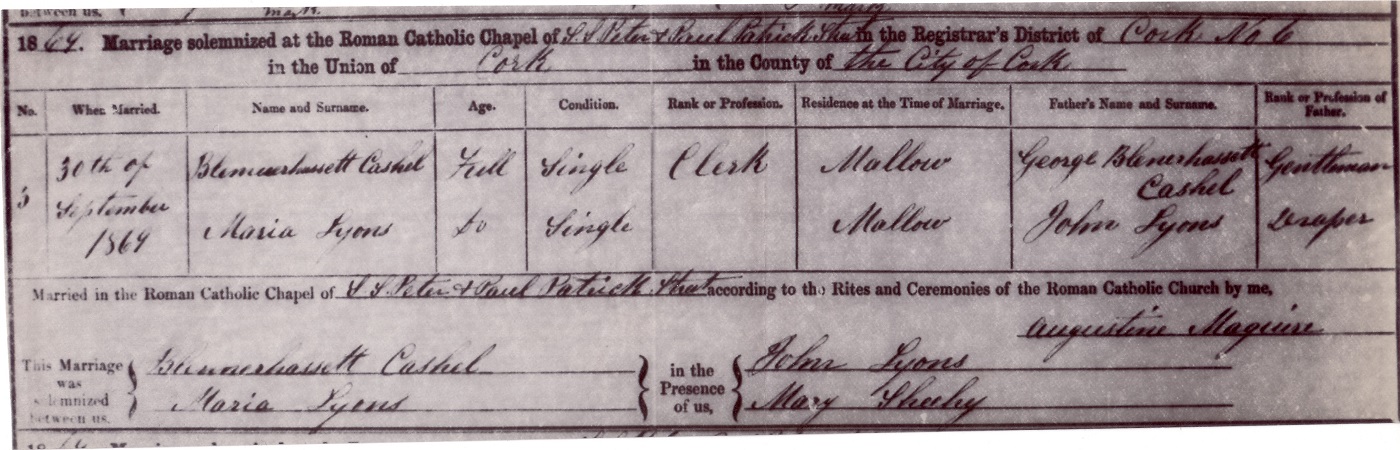 between us,
1869. Marriage solemnized at the Roman Catholic Chapel of S.S. Peter & Paul Patrick Street in the Registrar's District of Cork No 6
in the Union of Cork in the County of the City of Cork
No. When Married. Name and Surname. Age. Condition. Rank or Profession. Residence at the Time of Marriage. Father's Name and Surname. Rank or Profession of Father.
5 30th of September 1869 Blennerhassett Cashel Full Single Clerk Mallow George Blenerhassett Cashel Gentleman
Maria Lyons Do Single Mallow John Lyons Draper
Married in the Roman Catholic Chapel of S S Peter & Paul Patrick Street according to the Rites and Ceremonies of the Roman Catholic Church by me,
Augustine Maguire
This Marriage was solemnized between us, Blennerhassett Cashel in the Presence of us, John Lyons
Maria Lyons Mary Sheehy
1869